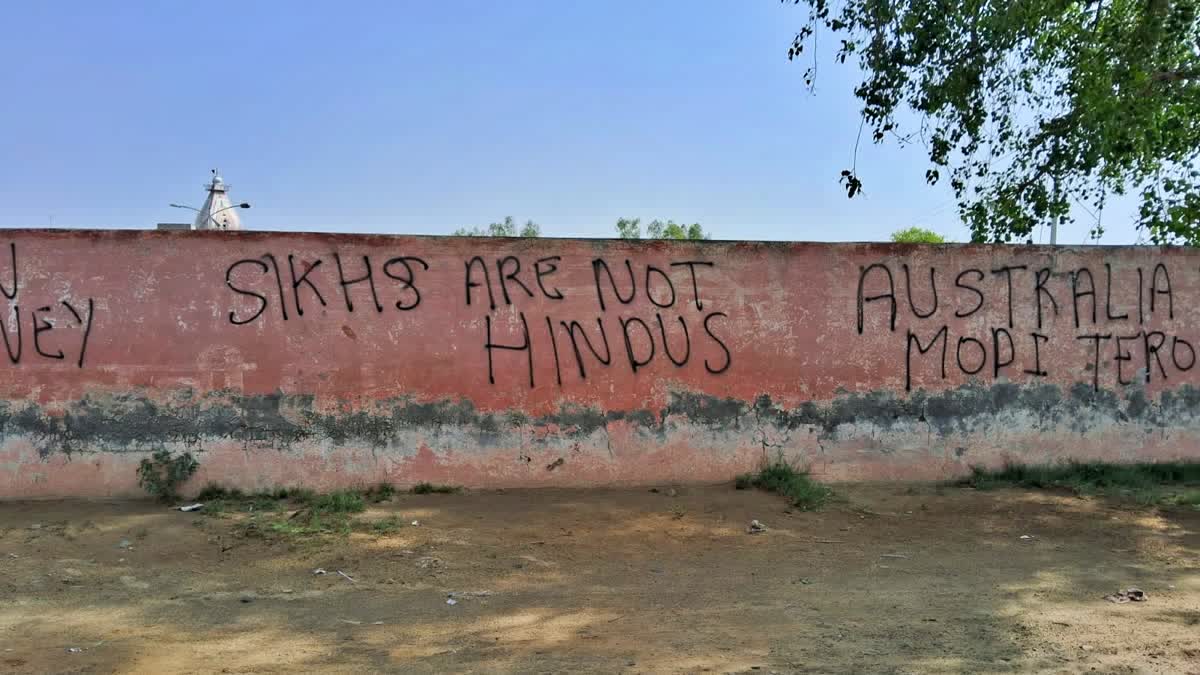 SIKHS ARE NOT
HINDUS
AUSTRALIA
MODI TERO